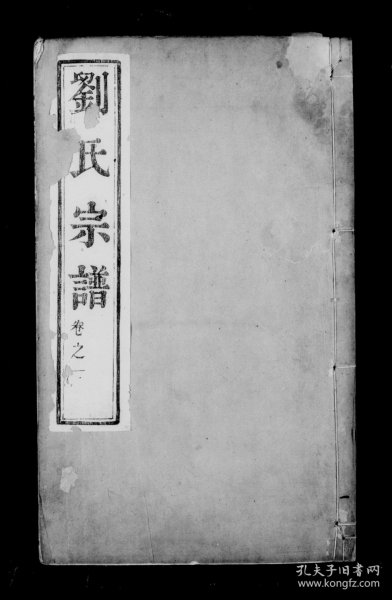 劉氏宗譜
卷之一
孔夫子旧书网
www.kongfz.com